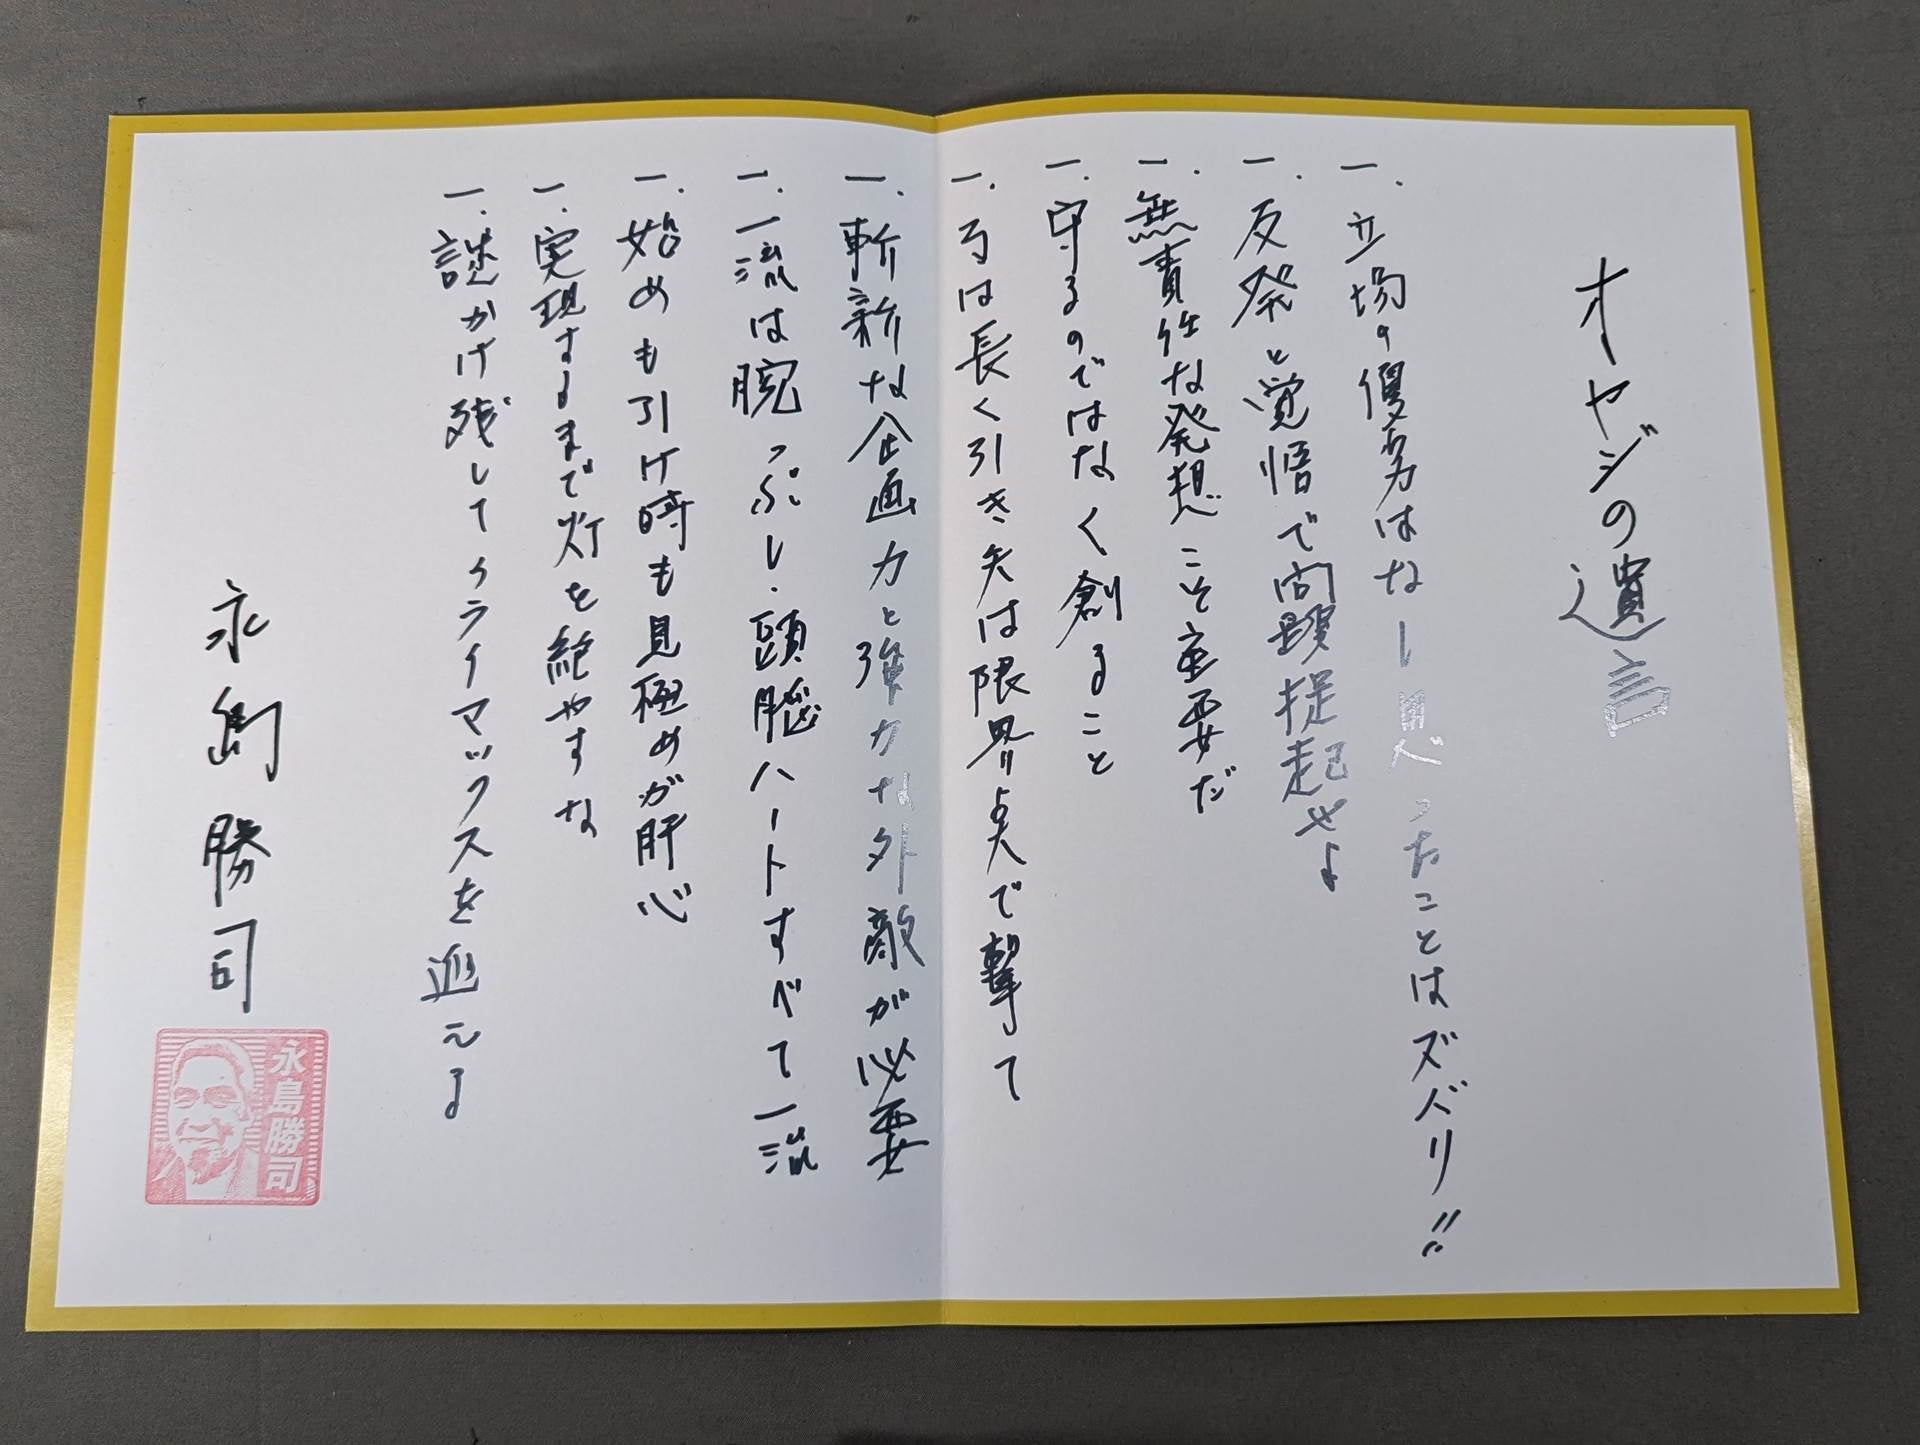 オヤジの遺言
一. 立場の優劣はなし 思ったことはズバリ!!
一. 反発と覚悟で問題提起せよ
一. 無責任な発想こそ重要だ
一. 守るのではなく創ること
一. 弓は長く引き矢は限界点で撃て
一. 斬新な企画力と強力な外敵が必要
一. 一流は腕っぷし・頭脳・ハートすべて一流
一. 始めも引け時も見極めが肝心
一. 実現するまで灯を絶やすな
一. 謎かけ残してクライマックスを迎える
永島勝司
永島勝司